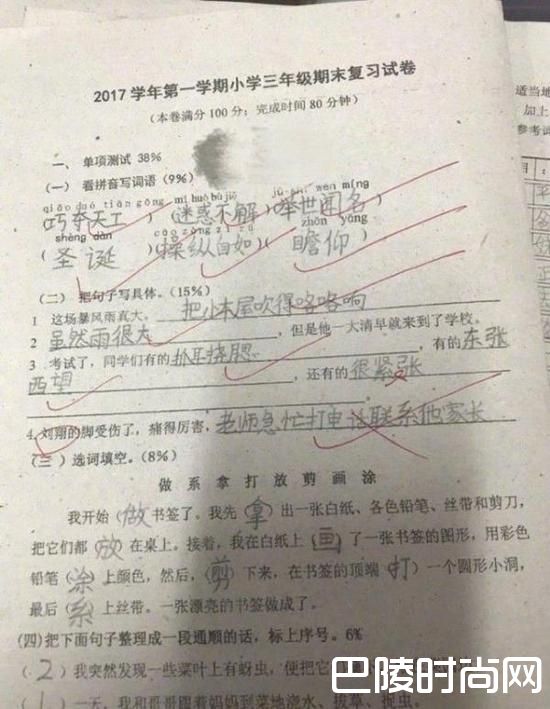 2017学年第一学期小学三年级期末复习试卷
(本卷满分100分;完成时间80分钟)
一、单项测试 38%
(一) 看拼音写词语 (9%)
qiǎo duó tiān gōng mí huò bù jiě jǔ shì wén míng
巧夺天工)(迷惑不解)(举世闻名)
shèng dàn cāo zòng zì rú zhān yǎng
(圣诞)(操纵自如)(瞻仰)
(二) 把句子写具体。(15%)
1 这场暴风雨真大。把小木屋吹得咯咯响
2 虽然雨很大,但是他一大清早就来到了学校。
3 考试了,同学们有的抓耳挠腮,有的东张
西望,还有的很紧张
4.刘翔的脚受伤了,痛得厉害,老师急忙打电话联系他家长
(三) 选词填空。(8%)
做 系 拿 打 放 剪 画 涂
我开始(做)书签了。我先(拿)出一张白纸、各色铅笔、丝带和剪刀,
把它们都(放)在桌上。接着,我在白纸上(画)了一张书签的图形,用彩色
铅笔(涂)上颜色,然后,(剪)下来,在书签的顶端(打)一个圆形小洞,
最后(系)上丝带。一张漂亮的书签做成了。
(四)把下面句子整理成一段通顺的话,标上序号。6%
(2)我突然发现一些菜叶上有蚜虫,便把它
(1)一天,我和哥哥跟着妈妈到菜地浇水、拔草、捉虫。
适当地
加上
参考试
巴陵时尚网